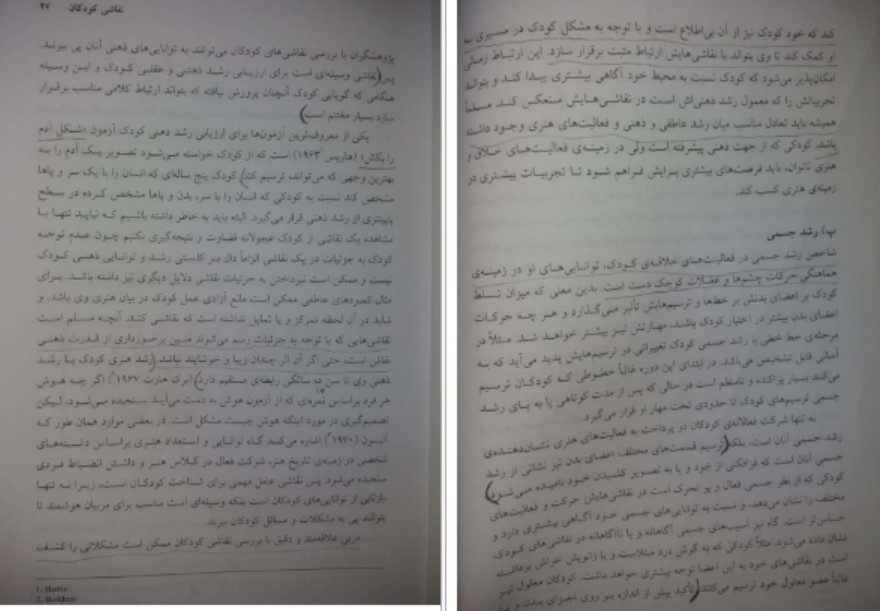 نقاشی کودکان ۲۷
پژوهشگران با بررسی نقاشی های کودکان می‌توانند به توانایی‌های ذهنی آنان پی ببرند.
پس نقاشی وسیله‌ای است برای ارزیابی رشد ذهنی و عقلی کودک و این وسیله
هنگامی که گویایی کودک آنچنان پرورش نیافته که بتواند ارتباط کلامی مناسب برقرار
سازد بسیار مغتنم است.
یکی از معروف‌ترین آزمون‌ها برای ارزیابی رشد ذهنی کودک آزمون «شکل آدم
را بکش» (هاریس ۱۹۶۳¹) است که از کودک خواسته می‌شود تصویر یک آدم را به
بهترین وجهی که می‌تواند، ترسیم کند. کودک پنج ساله‌ای که انسان را با یک سر و پاها
مشخص کند نسبت به کودکی که انسان را با سر، بدن و پاها مشخص کرده در سطح
پایینتری از رشد ذهنی قرار می‌گیرد. البته باید به خاطر داشته باشیم که نباید تنها با
مشاهده یک نقاشی از کودک عجولانه قضاوت و نتیجه‌گیری بکنیم چون عدم توجه
کودک به جزئیات در یک نقاشی الزاماً دال بر کاستی رشد و توانایی ذهنی کودک
نیست و ممکن است نپرداختن به جزئیات نقاشی دلایل دیگری نیز داشته باشد. برای
مثال کمبودهای عاطفی ممکن است مانع آزادی عمل کودک در بیان هنری وی باشد. و
شاید در آن لحظه تمرکز و یا تمایل نداشته است که نقاشی کند. آنچه مسلم است
نقاشی‌هایی که با توجه به جزئیات رسم می‌شوند مبین برخورداری از قدرت ذهنی
نقاش است، حتی اگر آن اثر چندان زیبا و خوشایند نباشد. رشد هنری کودک با رشد
ذهنی وی تا سن ده سالگی رابطه‌ی مستقیم دارد (برک هارت ۱۹۶۷²) اگر چه هوش
هر فرد براساس نمره‌ای که از آزمون هوش به دست می‌آید سنجیده می‌شود، لیکن
تصمیم‌گیری در مورد اینکه هوش چیست مشکل است. در بعضی موارد همان طور که
(۱۹۷۰) اشاره می‌کند گاه توانایی و استعداد هنری براساس دانسته‌های
شخصی در زمینه‌ی تاریخ هنر، شرکت فعال در کلاس هنر و داشتن انضباط فردی
سنجیده می‌شود. پس نقاشی عامل مهمی برای شناخت کودکان است، زیرا نه تنها
بازتابی از توانایی‌های کودکان است بلکه وسیله‌ای است مناسب برای مربیان هوشمند تا
بتوانند پی به مشکلات و مسائل کودکان ببرند.
مربی علاقه‌مند و دقیق با بررسی نقاشی کودکان ممکن است مشکلاتی را کشف
1. Harris
2. Burkhart
کند که خود کودک نیز از آن بی‌اطلاع است و با توجه به مشکل کودک در مسیری به
او کمک کند تا وی بتواند با نقاشی‌هایش ارتباط مثبت برقرار سازد. این ارتباط زمانی
امکان‌پذیر می‌شود که کودک نسبت به محیط خود آگاهی بیشتری پیدا کند و بتواند
تجربیاتش را که معمول رشد ذهنی‌اش است در نقاشی‌هایش منعکس کند. مسلماً
همیشه باید تعادل مناسب میان رشد عاطفی و ذهنی و فعالیت‌های هنری وجود داشته
باشد. کودکی که از جهت ذهنی پیشرفته است ولی در زمینه‌ی فعالیت‌های خلاق و
هنری ناتوان، باید فرصت‌های بیشتری برایش فراهم شود تا تجربیات بیشتری در
زمینه‌ی هنری کسب کند.
پ) رشد جسمی
شاخص رشد جسمی در فعالیت‌های خلاقه‌ی کودک، توانایی‌های او در زمینه‌ی
هماهنگی حرکات چشم‌ها و عضلات کوچک دست است. بدین معنی که میزان تسلط
کودک بر اعضای بدنش بر خط‌ها و ترسیم‌هایش تأثیر می‌گذارد و هر چه حرکات
اعضای بدن بیشتر در اختیار کودک باشد، مهارتش نیز بیشتر خواهد شد. مثلاً در
مرحله‌ی خط خطی با رشد جسمی کودک تغییراتی در ترسیم‌هایش پدید می‌آید که به
آسانی قابل تشخیص می‌باشد. در ابتدای این دوره غالباً خطوطی که کودکان ترسیم
می‌کنند بسیار پراکنده و نامنظم است در حالی که پس از مدت کوتاهی پا به پای رشد
جسمی ترسیم‌های کودک تا حدودی تحت مهار او قرار می‌گیرد.
نه تنها شرکت فعالانه‌ی کودکان در پرداخت به فعالیت‌های هنری نشان‌دهنده‌ی
رشد جسمی آنان است، بلکه ترسیم قسمت‌های مختلف اعضای بدن نیز نشانی از رشد
جسمی آنان است که فرافکنی از خود و یا به تصویر کشیدن خود نامیده می‌شود.
کودکی که از نظر جسمی فعال و پر تحرک است در نقاشی‌هایش حرکت و فعالیت‌های
مختلف را نشان می‌دهد، و نسبت به توانایی‌های جسمی خود آگاهی بیشتری دارد و
حساس‌تر است. گاه نیز آسیب‌های جسمی آگاهانه و یا ناآگاهانه در نقاشی‌های کودک
نشان داده می‌شود. مثلاً کودکی که به گوش درد مبتلاست و یا زانویش خراش برداشته
است در نقاشی‌های خود به این اعضا توجه بیشتری خواهد داشت. کودکان معلول نیز
غالباً عضو معلول خود ترسیم می‌کنند. تأکید بیش از اندازه بر روی اجزای بدن و